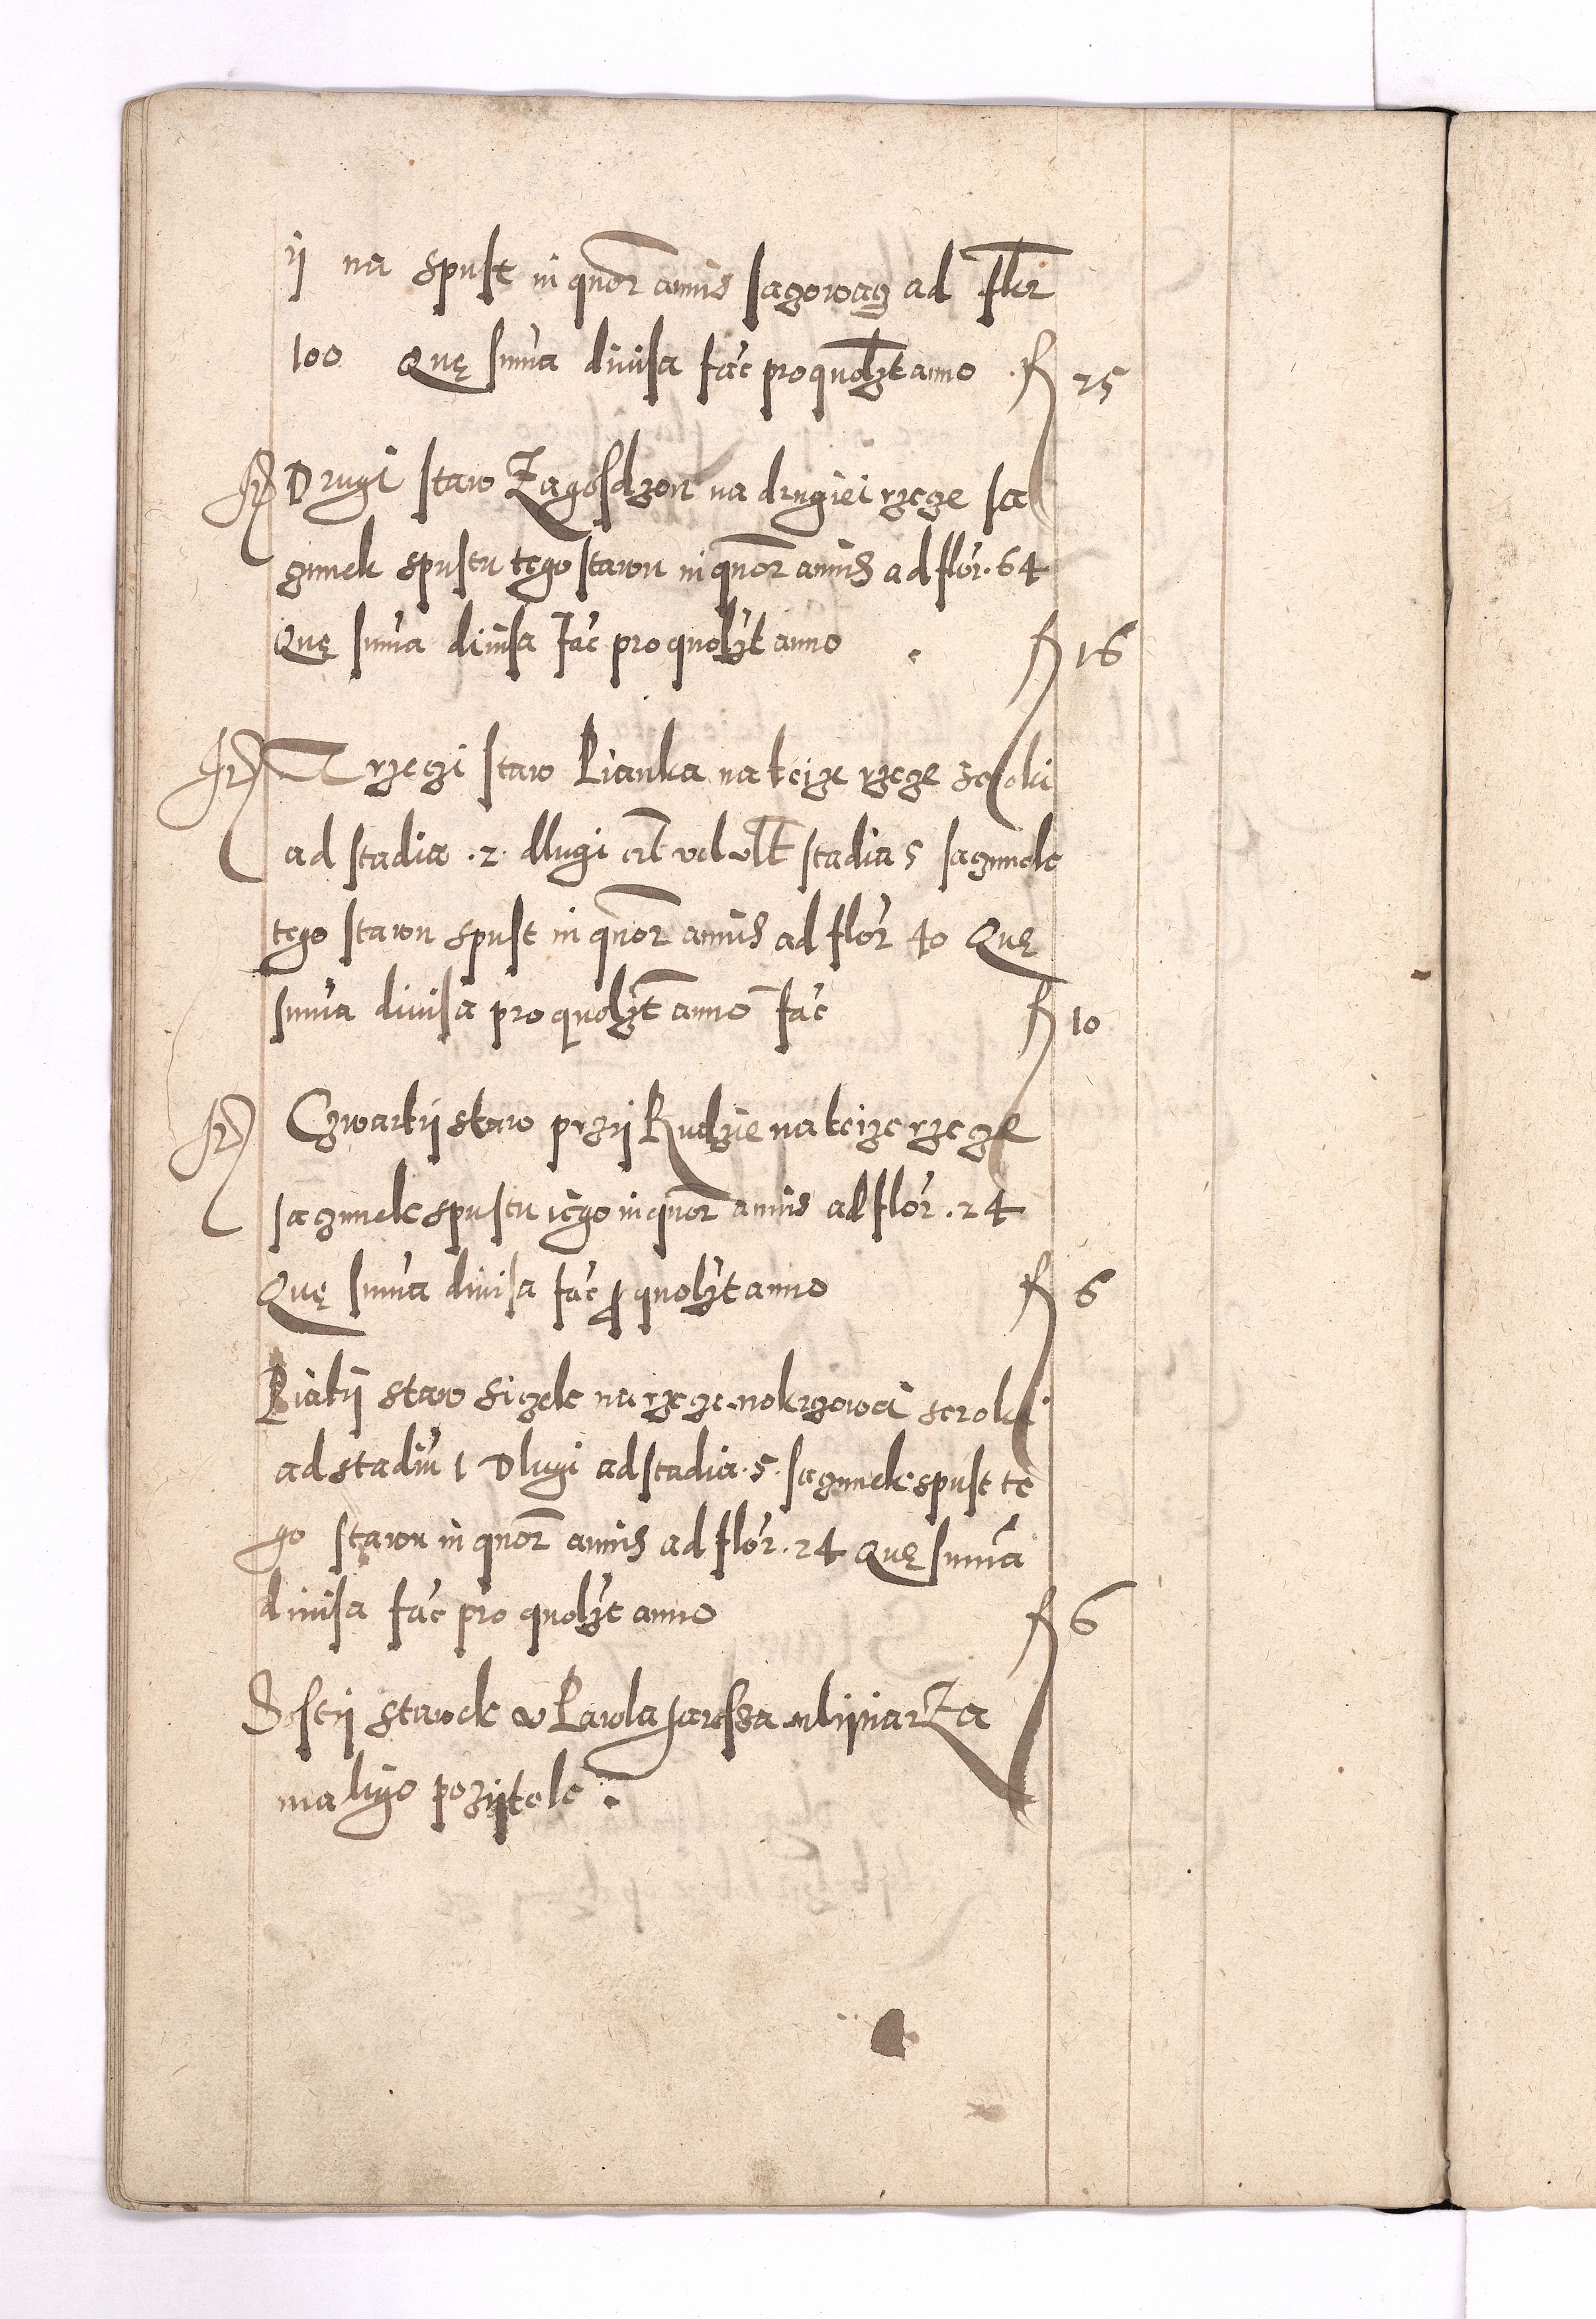 ij na spust in quor annis sacowacz ad flor
100 Quę suma diuisa fac pro quolzt anno fl 25
It Drugi staw Zagosdzon na drugiei rzecze sa
czunek spustu tego stawu in quor annis ad flor. 64
Quę suma diuisa fac pro quolzt anno fl 16
It Trzeczi staw Pianka na teize rzecze seroki
ad stadia .2. dlugi vel vlt stadia 5 saczunek
tego stawu spust in quor annis ad flor 40 Quę
suma diuisa pro quolzt anno fac fl 10
It Czwartij staw przij Rudzie na teize rzecze
saczunek spustu iego in quor annis ad flor .24
Quę suma diuisa fac p quolzt anno fl 6
Piatij staw na rzecze seroki
ad stadiu 1 Dlugi ad stadia .5. saczunek spust te
go stawu in quor annis ad flor .24 Quę suma
diuisa fac pro quolzt anno fl 6
Sostij stawek v Pawla mlijnarza
maligo pozijtek